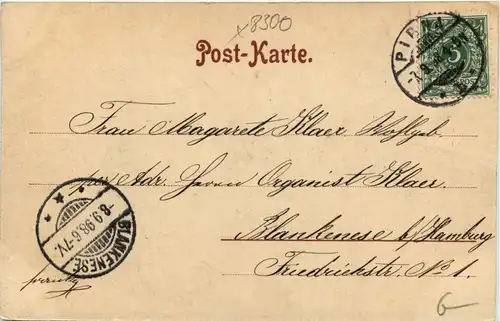 x8300
Post-Karte.
PIRNA
5
Frau Margarete Klaer Wohlgeb.
per Adr. Herrn Organist Klaer.
Blankenese b/Hamburg
Friedrichstr. No 1.
-8.9.98.6-7V.
BLANKENESE
6